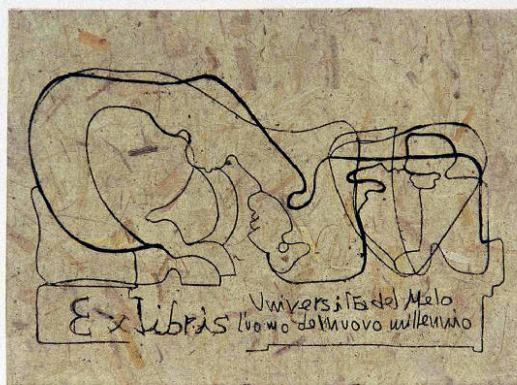 Ex libris
Università del Melo
l'uomo del nuovo millennio